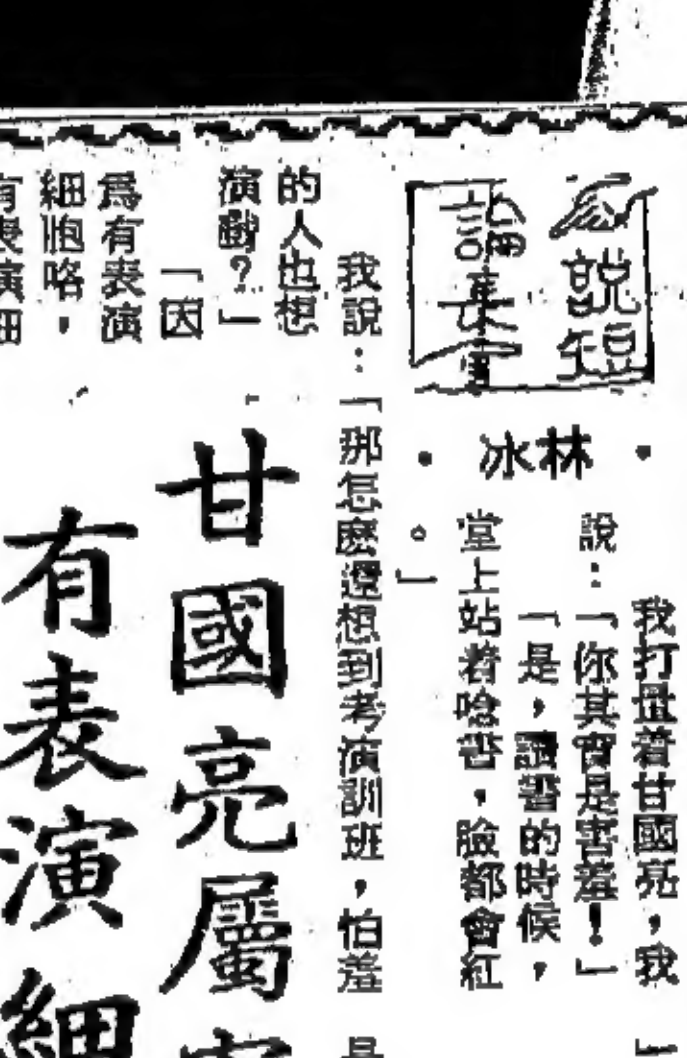 說短
論長
林冰
我打量着甘國亮，我
說：「你其實是害羞！」
「是，讀書的時候，
堂上站着唸書，臉都會紅
。」
我說：「那怎麼還想到考演訓班，怕羞
的人也想
演戲？」
「因
爲有表演
細胞咯，
有表演細
甘國亮屬
有表演細